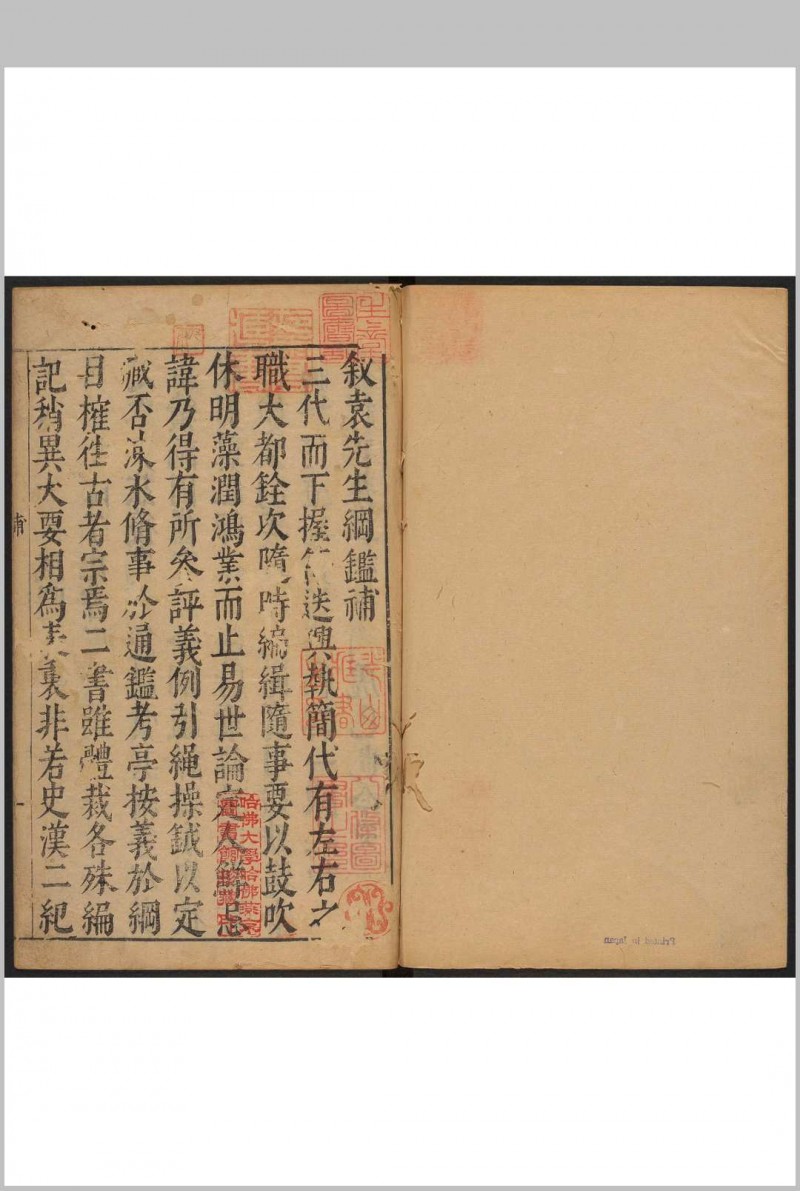 叙袁先生綱鑑補
三代而下握迭興執簡代有左右之
職大都銓次隋時編緝隨事要以鼓吹
休明藻潤鴻業而止易世論定人鮮忌
諱乃得有所叅評義例引繩操鉞以定
臧否涑水脩事於通鑑考亭按義於綱
目搉徃古者宗焉二書雖體裁各殊編
記稍異大要相爲表裏非若史漢二紀
哈佛大學哈佛燕京
圖書館珍藏印
Printed in Japan